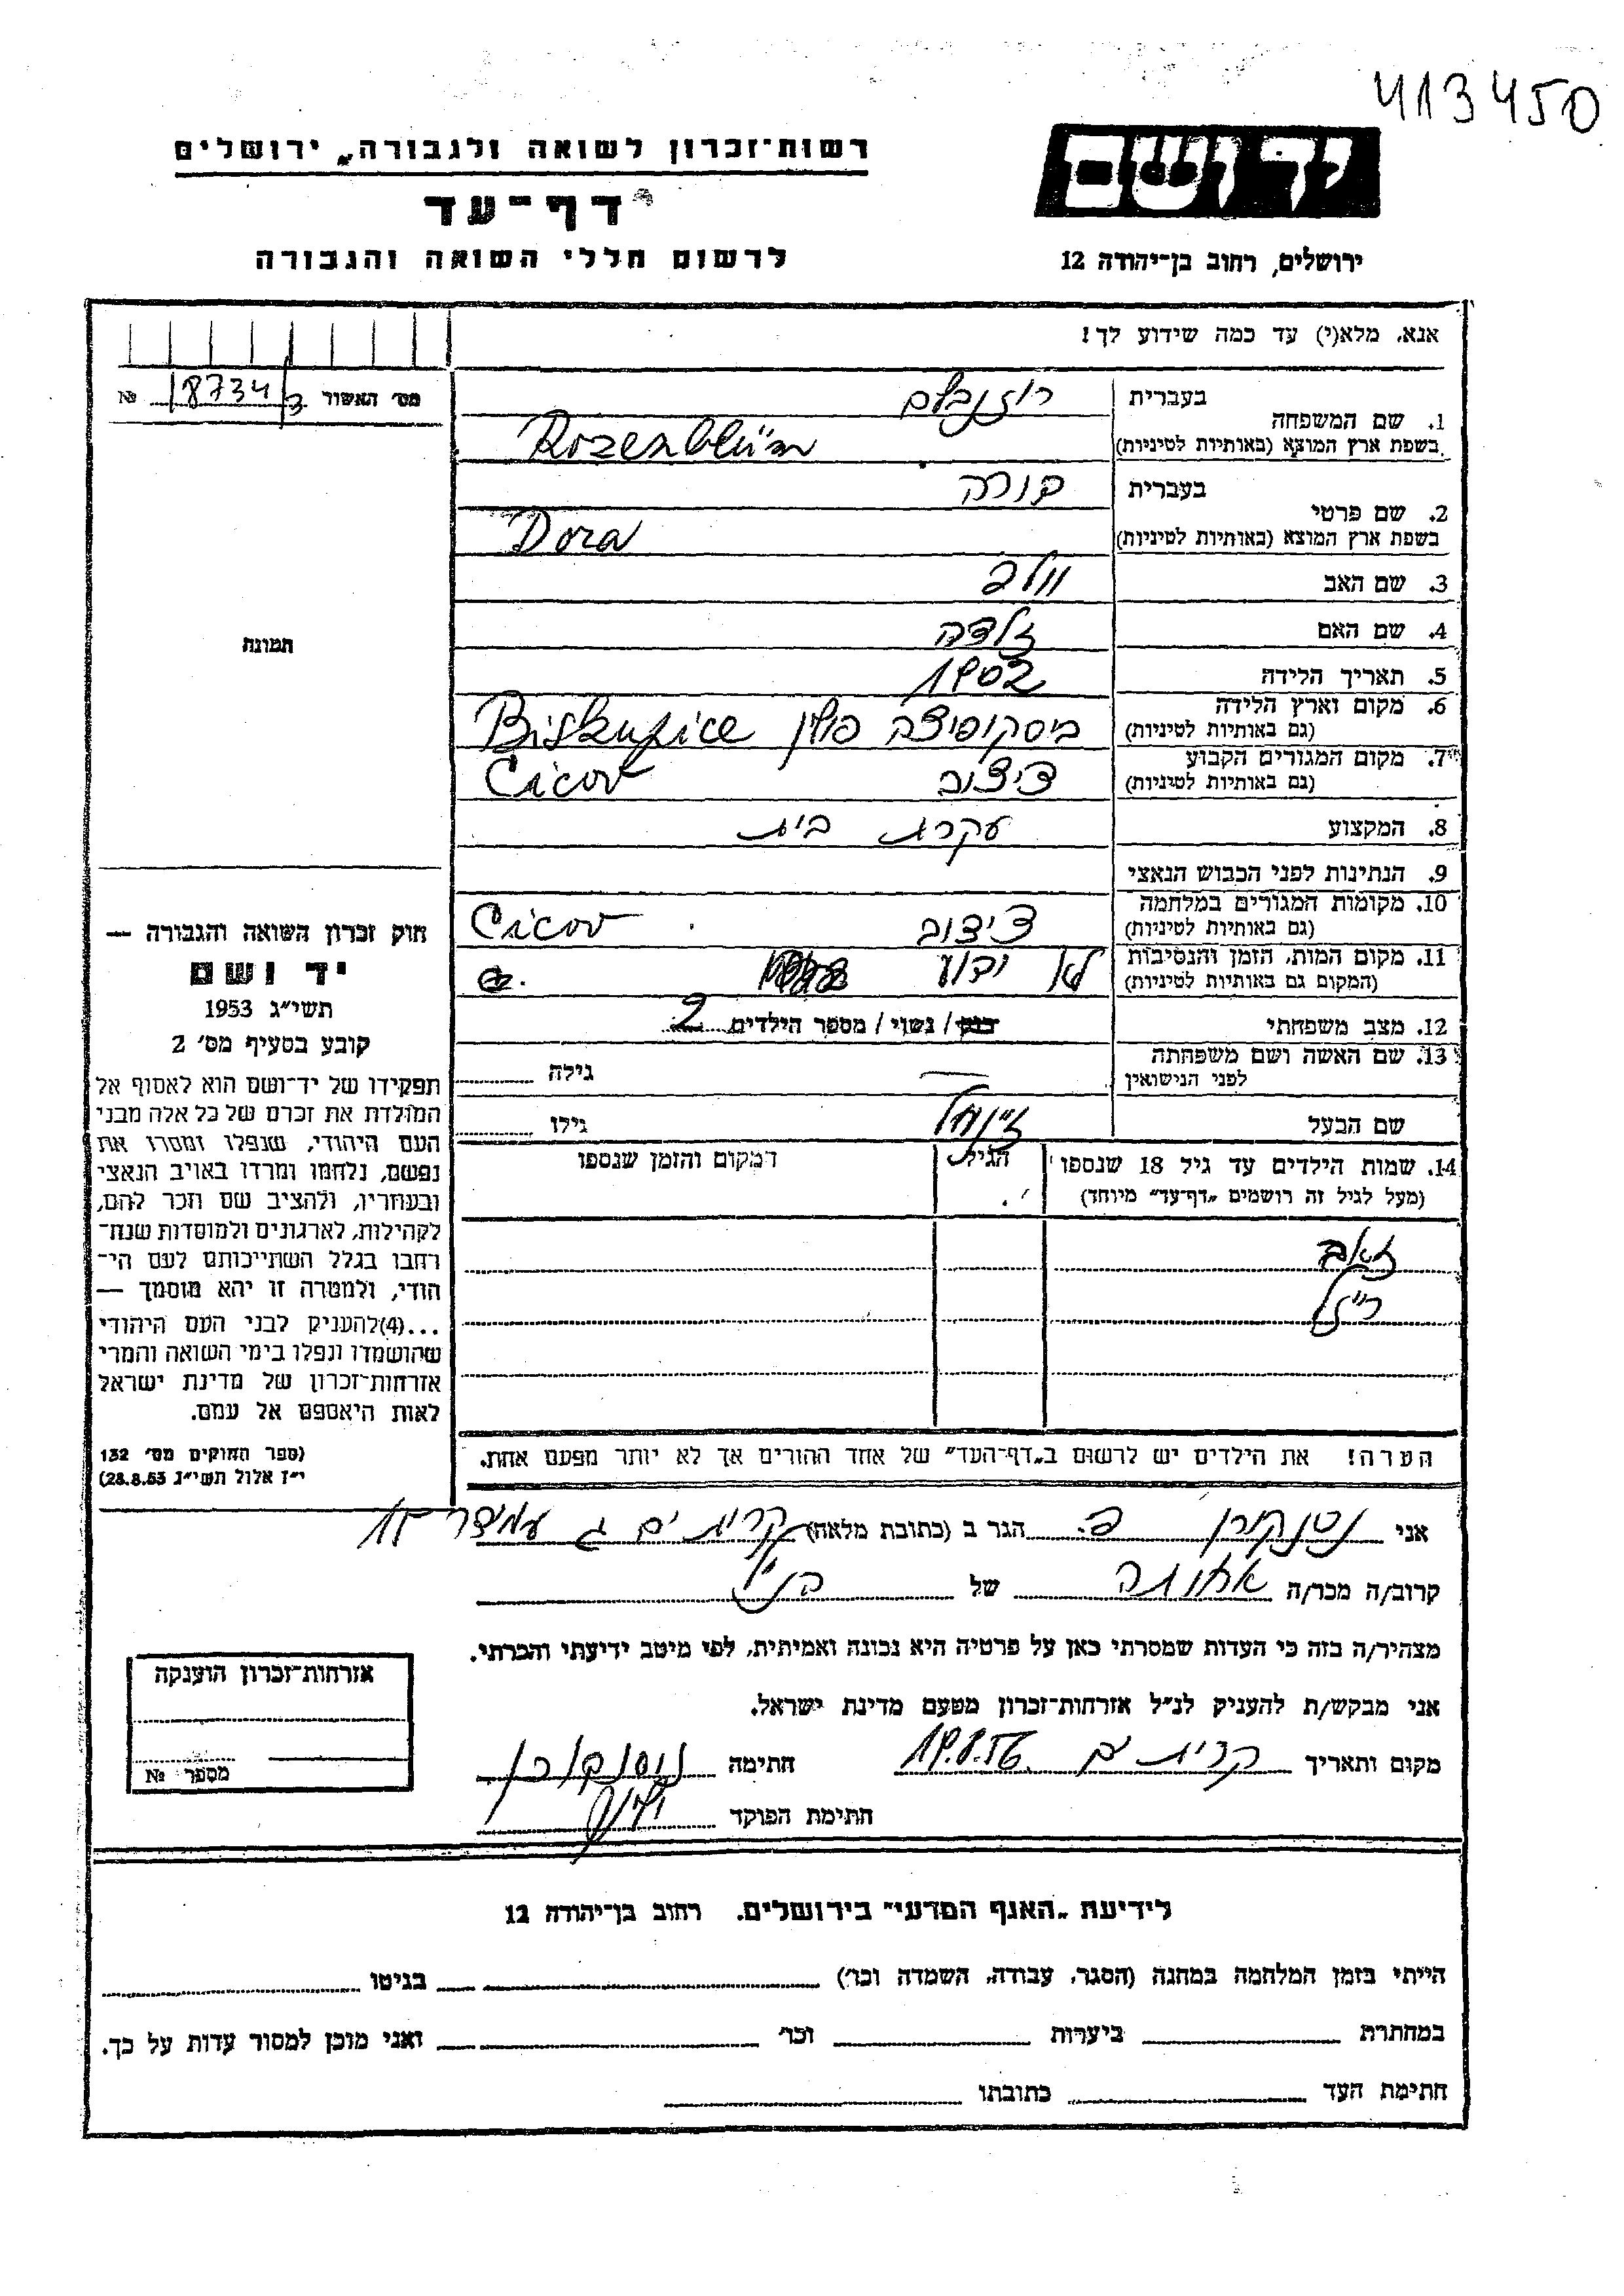 413450
רשות־זכרון לשואה ולגבורה, ירושלים
דף־עד
לרשום חללי השואה והגבורה
יד ושם
ירושלים, רחוב בן־יהודה 12
אנא, מלא(י) עד כמה שידוע לך!
מס׳ האשור 18734/3 №
תמונה
1. שם המשפחה בעברית רוזנבלום
בשפת ארץ המוצא (באותיות לטיניות) Rozenblüm
2. שם פרטי בעברית דורה
בשפת ארץ המוצא (באותיות לטיניות) Dora
3. שם האב וולב
4. שם האם זלדה
5. תאריך הלידה 1902
6. מקום וארץ הלידה (גם באותיות לטיניות) ביסקופיצה פולין Biskupice
7. מקום המגורים הקבוע (גם באותיות לטיניות) ציצוב Cicov
8. המקצוע עקרת בית
9. הנתינות לפני הכבוש הנאצי
10. מקומות המגורים במלחמה (גם באותיות לטיניות) ציצוב Cicov
11. מקום המות, הזמן והנסיבות (המקום גם באותיות לטיניות) לא ידוע
12. מצב משפחתי רווק / נשוי / מספר הילדים 2
13. שם האשה ושם משפחתה לפני הנישואין — גילה
שם הבעל גילו
14. שמות הילדים עד גיל 18 שנספו (מעל לגיל זה רושמים „דף־עד״ מיוחד) הגיל המקום והזמן שנספו
זאב
רייזל
הערה! את הילדים יש לרשום ב„דף־העד״ של אחד ההורים אך לא יותר מפעם אחת.
חוק זכרון השואה והגבורה —
יד ושם
תשי״ג 1953
קובע בסעיף מס׳ 2
תפקידו של יד־ושם הוא לאסוף אל
המולדת את זכרם של כל אלה מבני
העם היהודי, שנפלו ומסרו את
נפשם, נלחמו ומרדו באויב הנאצי
ובעוזריו, ולהציב שם וזכר להם,
לקהילות, לארגונים ולמוסדות שנח־
רבו בגלל השתייכותם לעם הי־
הודי, ולמטרה זו יהא מוסמך —
...(4)להעניק לבני העם היהודי
שהושמדו ונפלו בימי השואה והמרי
אזרחות־זכרון של מדינת ישראל
לאות היאספם אל עמם.
(ספר החוקים מס׳ 132
י״ז אלול תשי״ג 28.8.53)
אני נסנקורן פ. הגר ב (כתובת מלאה) קרית ים ג עמידר
קרוב/ה מכר/ה אחותה של הנ״ל
מצהיר/ה בזה כי העדות שמסרתי כאן על פרטיה היא נכונה ואמיתית, לפי מיטב ידיעתי והכרתי.
אני מבקש/ת להעניק לנ״ל אזרחות־זכרון מטעם מדינת ישראל.
מקום ותאריך קרית ים 19.8.56 חתימה נוסנקורן
חתימת הפוקד
אזרחות־זכרון הוענקה
מספר №
לידיעת „האגף המדעי״ בירושלים. רחוב בן־יהודה 12
הייתי בזמן המלחמה במחנה (הסגר, עבודה, השמדה וכו׳) בגיטו
במחתרת ביערות וכו׳ ואני מוכן למסור עדות על כך.
חתימת העד כתובתו